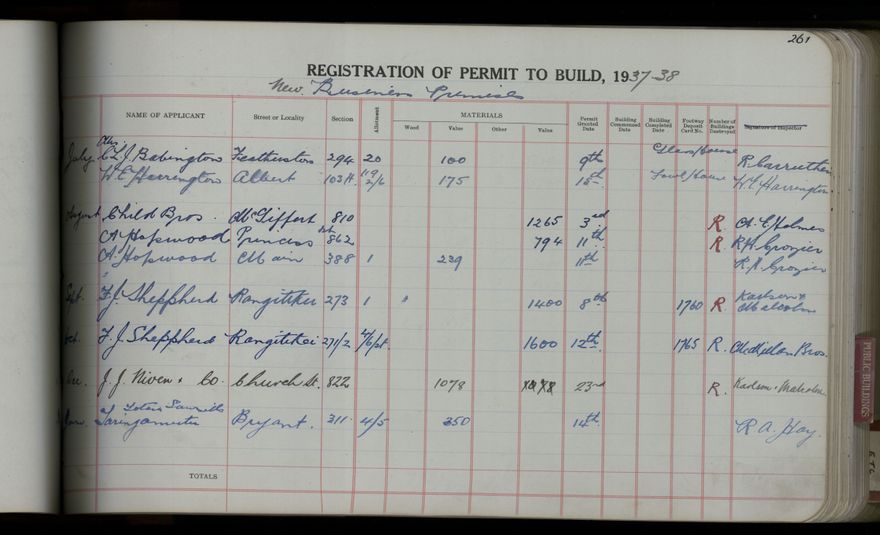 261
REGISTRATION OF PERMIT TO BUILD, 1937-38
New Business Premises
NAME OF APPLICANT Street or Locality Section Allotment MATERIALS Wood Value Other Value Permit Granted Date Building Commenced Date Building Completed Date Footway Deposit Card No. Number of Buildings Destroyed Signature of Inspector
July C. L. J. Babington 294 20 100 9th Glass/house R Carruthers
W. E. Harrington Albert 175 15th Fowl/house W. E. Harrington
August Child Bros. McGiffert 810 1265 3rd R. A. E. Holmes
A. Hopwood Princess St 862 794 11th R. R. A. Grozier
A. Hopwood Main 388 1 239 11th R. A. Grozier
Sept. F. J. Sheppherd Rangitikei 273 1 1400 8th 1760 R. Karlson & Malcolm
Oct. F. J. Sheppherd Rangitikei 271/2 1600 12th 1765 R. Bros.
Dec. J. J. Niven & Co. Church St. 822 1078 1078 23rd R. Karlson & Malcolm
Jan. Taringamutu Totara Sawmills Bryant. 311 4/5 350 14th R. A. Hay.
TOTALS
PUBLIC BUILDINGS